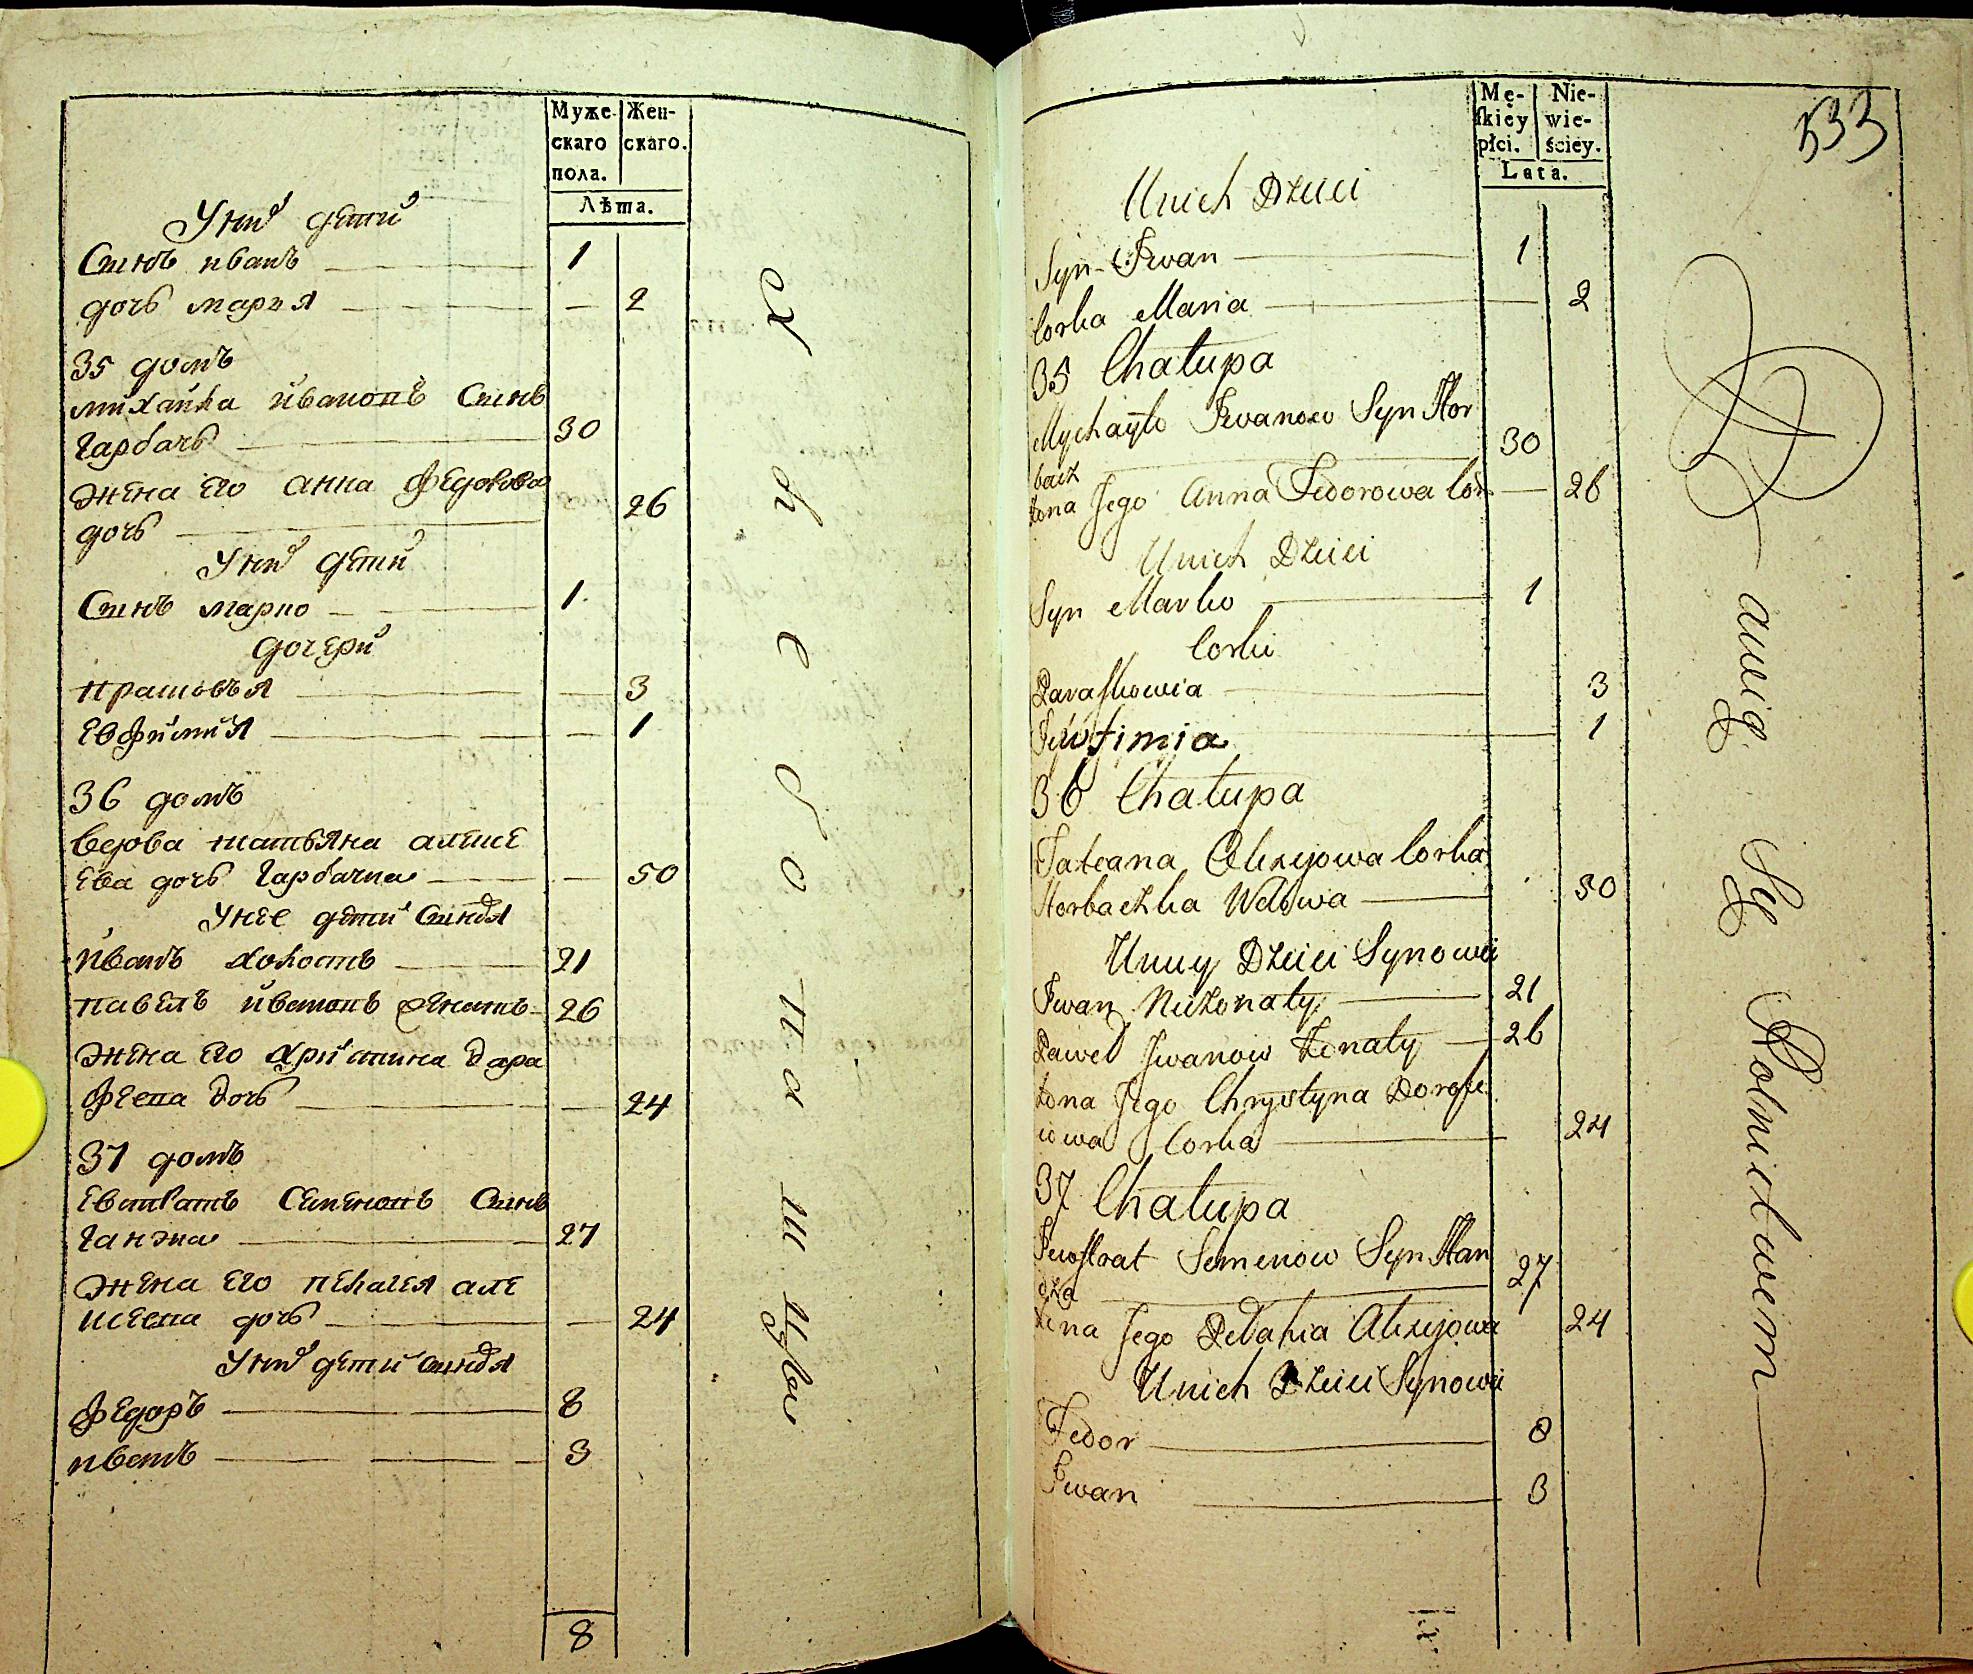 Муже-
скаго
пола.
Жен-
скаго.
Лѣта.
У них дети
Синъ иванъ 1
дочъ мария 2
35 домъ
михайла ивановъ Синъ
Гарбачъ 30
Жена его анна Федорова
дочъ 26
У них дети
Синъ марко 1
дочери
прасковъя 3
Евфимия 1
36 домъ
вдова татьяна алексе
Ева дочъ Гарбачка 50
У нее дети Синовя
иванъ холостъ 21
павелъ ивановъ женатъ 26
Жена его христина дара
феева дочъ 24
37 домъ
Евстратъ Семеновъ Синъ
Ганжа 27
Жена его пелагея але
ксеева дочъ 24
У них дети синовя
Федоръ 8
иванъ 3
8
хлебопашцы
533
Mę-
skiey
płci.
Nie-
wie-
ściey.
Lata.
Unich Dzieci
Syn Iwan 1
Corka Maria 2
35 Chałupa
Mychayło Iwanow Syn Hor
bacz 30
Żona Jego Anna Fedorowa Cor 26
Unich Dzieci
Syn Marko 1
Corki
Paraskowia 3
Jewfimia 1
36 Chałupa
Tateana Alexijowa Corka
Horbaczka Wdowa 50
Uniey Dzieci Synowie
Iwan Nieżonaty 21
Paweł Iwanow Żonaty 26
Żona Jego Chrystyna Dorofie
iowa Corka 24
37 Chałupa
Jewstrat Semenow Syn Han
dża 27
Żona Jego Pełahia Alexijowa 24
Unich Dzieci Synowie
Fedor 8
Iwan 3
bawią Się Rolnictwem